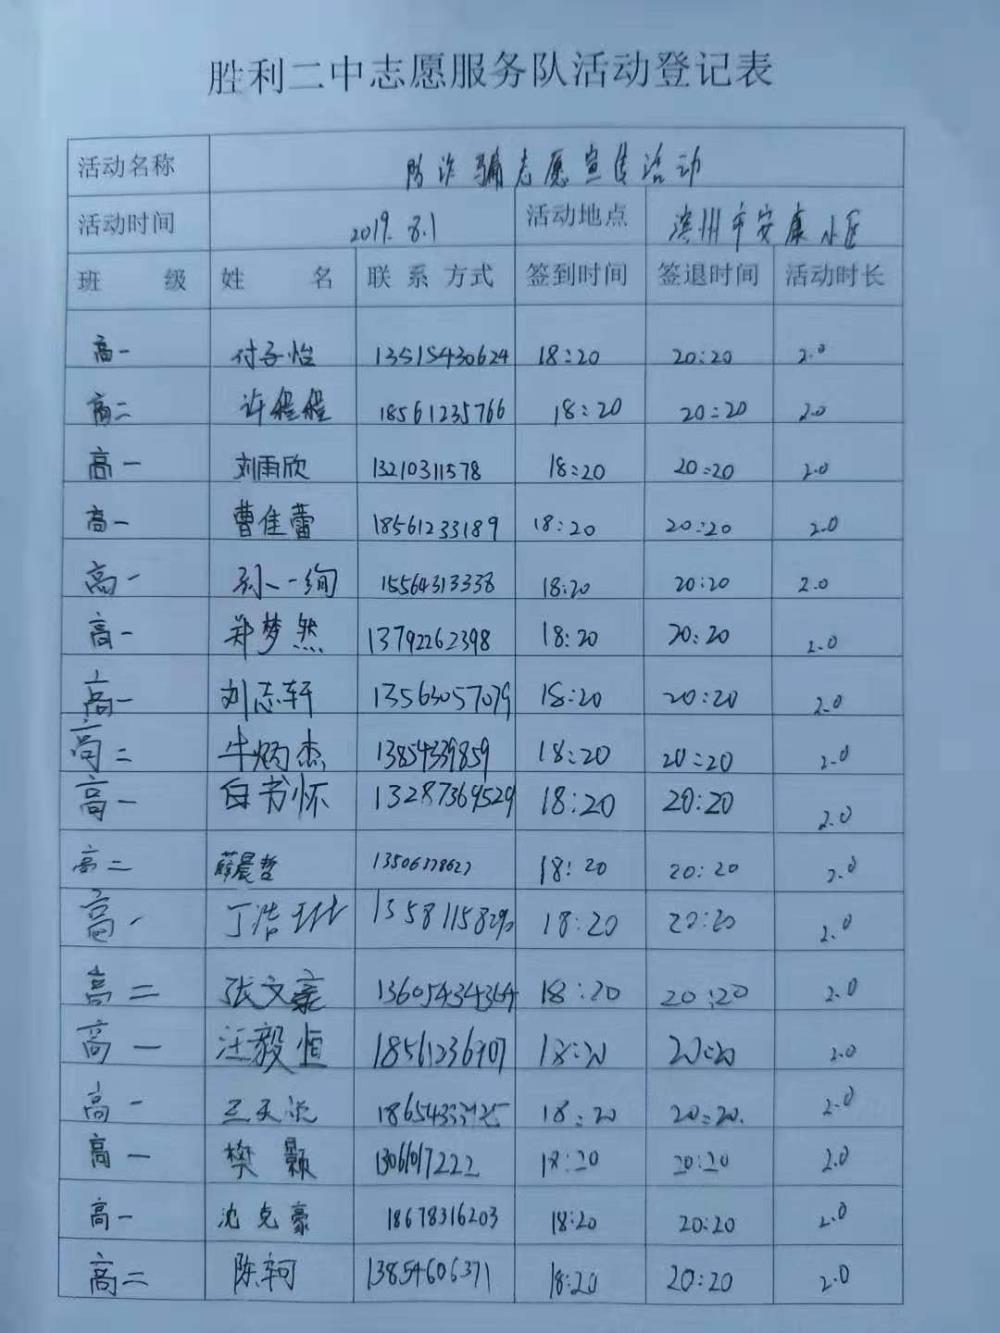 胜利二中志愿服务队活动登记表
活动名称 防诈骗志愿宣传活动
活动时间 2019.8.1 活动地点 滨州市安康小区
班 级 姓 名 联系方式 签到时间 签退时间 活动时长
高一 付子怡 13515430624 18:20 20:20 2.0
高二 许程程 18561235766 18:20 20:20 2.0
高一 刘雨欣 13210311578 18:20 20:20 2.0
高一 曹佳蕾 18561233189 18:20 20:20 2.0
高一 孙一绚 15564313338 18:20 20:20 2.0
高一 郑梦然 13792262398 18:20 20:20 2.0
高一 刘志轩 13563057079 18:20 20:20 2.0
高二 牛炳杰 13854339859 18:20 20:20 2.0
高一 白书怀 13287369529 18:20 20:20 2.0
高二 薛晨哲 18:20 20:20 2.0
高一 丁浩 18:20 20:20 2.0
高二 张文豪 13605434364 18:20 20:20 2.0
高一 汪毅恒 18561236907 18:20 20:20 2.0
高一 18:20 20:20. 2.0
高一 樊颢 18:20 20:20 2.0
高一 沈克豪 18678316203 18:20 20:20 2.0
高二 陈轲 13854606371 18:20 20:20 2.0